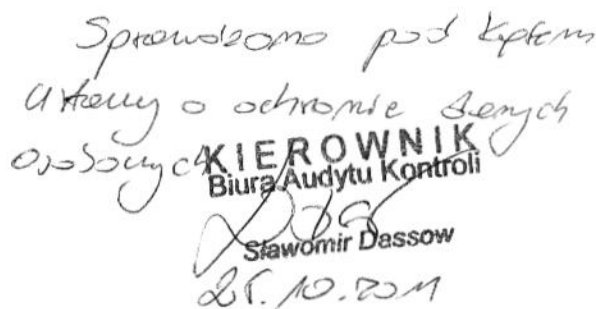 Sprawdzono pod kątem
Ustawy o ochronie danych
osobowych
KIEROWNIK
Biura Audytu Kontroli
Sławomir Dassow
25.10.2011